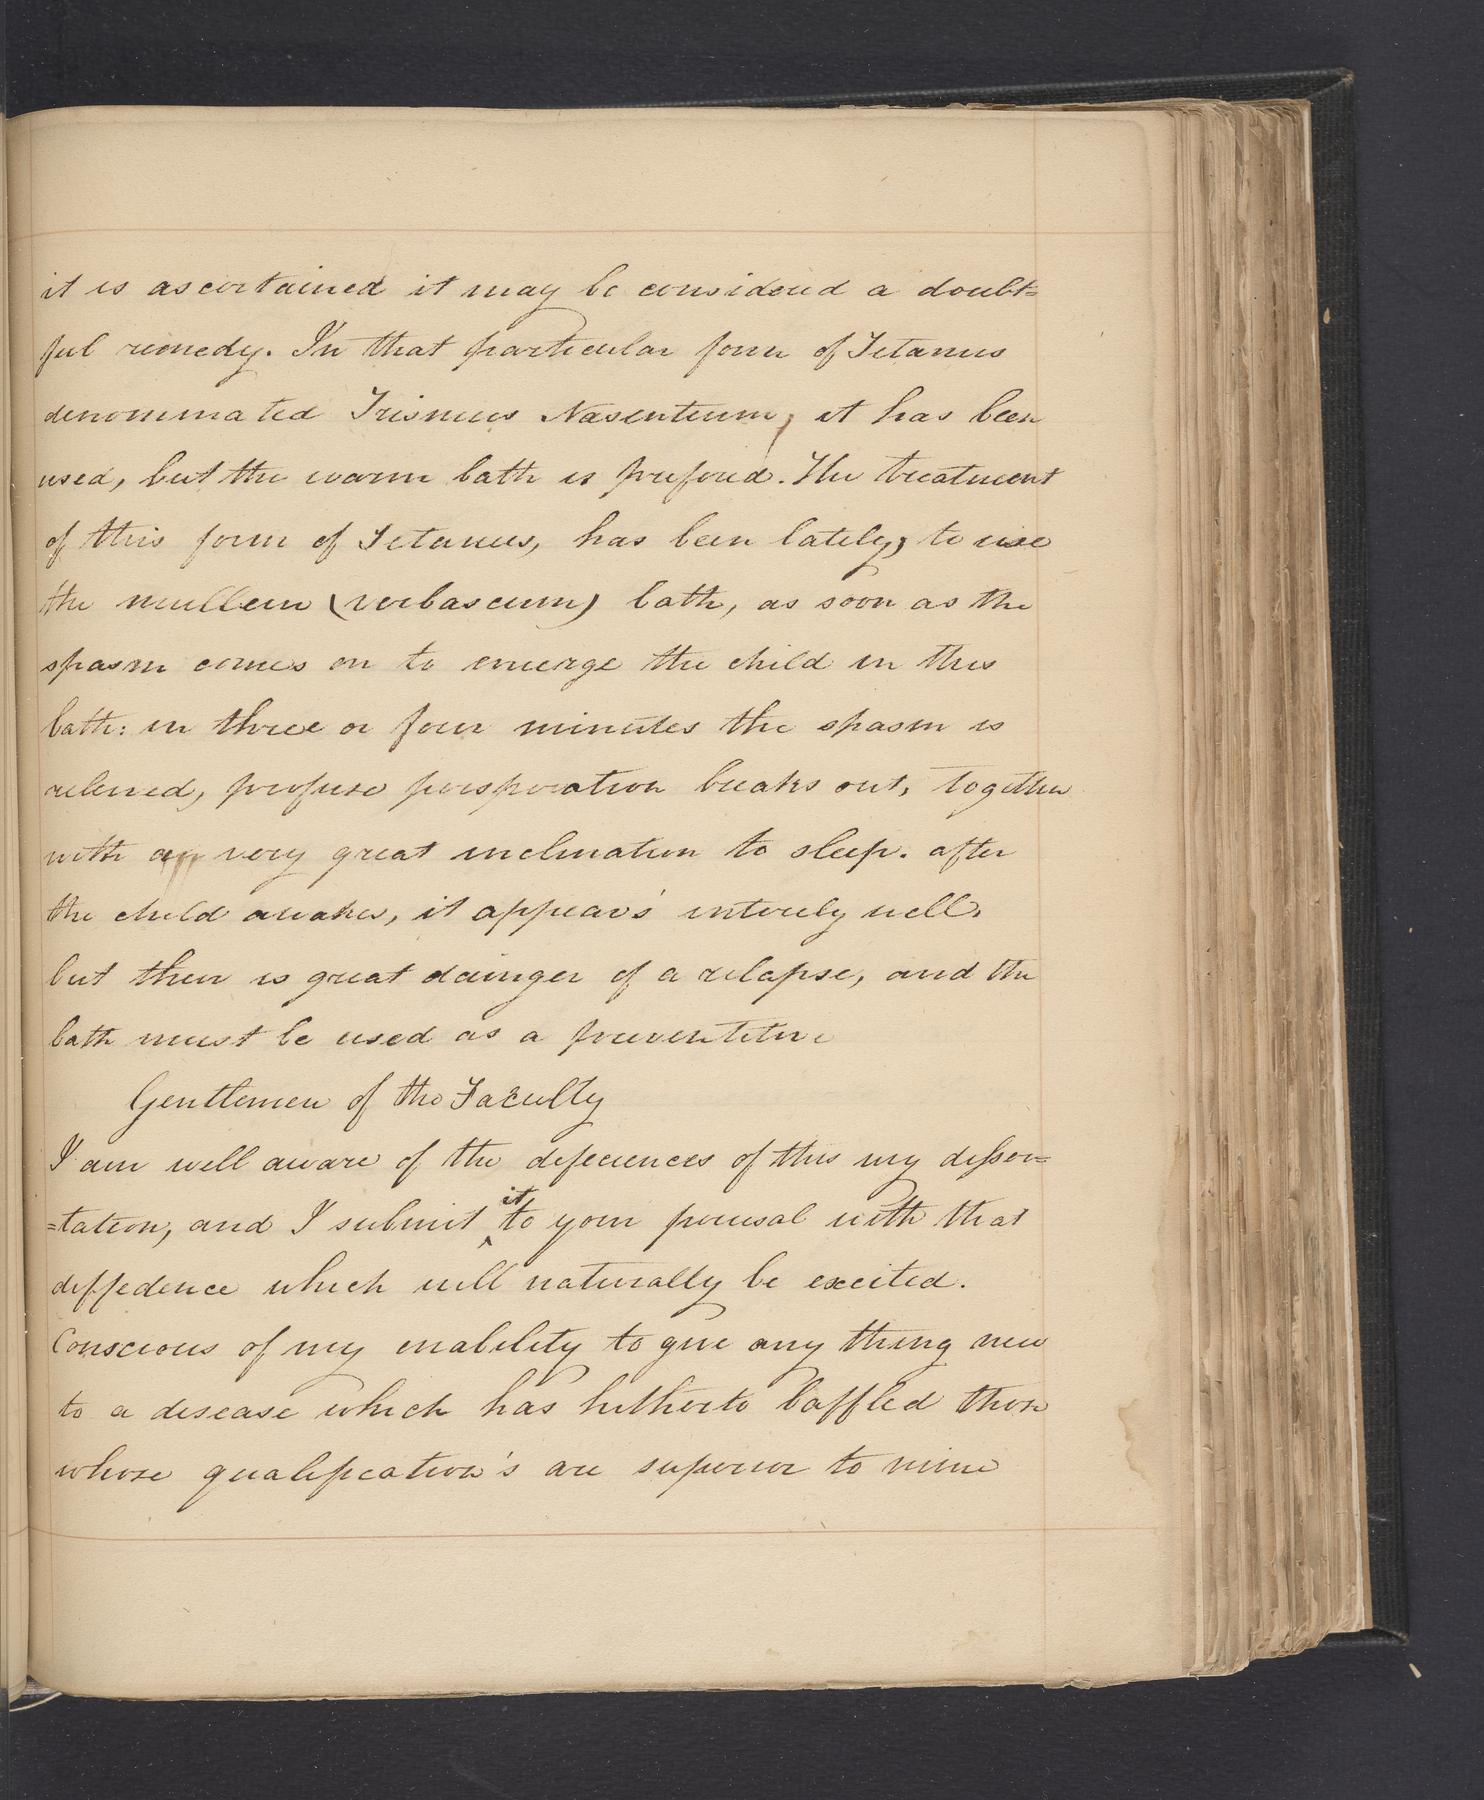 it is ascertained it may be considered a doubt=
ful remedy. In that particular form of Tetanus
denominated Trismus Nasentium, it has been
used, but the warm bath is prefered. The treatment
of this form of Tetanus, has been lately, to use
the mullein (verbascum) bath, as soon as the
spasm comes on to emerge the child in this
bath: in three or four minutes the spasm is
relieved, profuse perspiration breaks out, together
with a very great inclination to sleep. after
the child awakes, it appear's intirely well,
but their is great dainger of a relapse, and the
bath must be used as a preventitive
Gentlemen of the Faculty
I am well aware of the defeciences of this my disser=
=tation, and I submit it to your perusal with that
deffedence which will naturally be excited.
Conscious of my enability to give any thing new
to a disease which has hitherto baffled those
whose qualification's are superior to mine